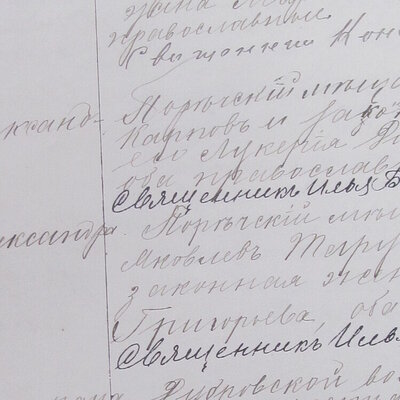 жена
православные
Священник Кон
ксанд- Порѣчскій мѣща
Карповъ и зако
его Лукерія
оба православ
Священникъ Илья Б
ександра Порѣчскій мѣ
Яковлевъ
законная жен
Григорьева, оба
Священникъ Иль
Дубровской во